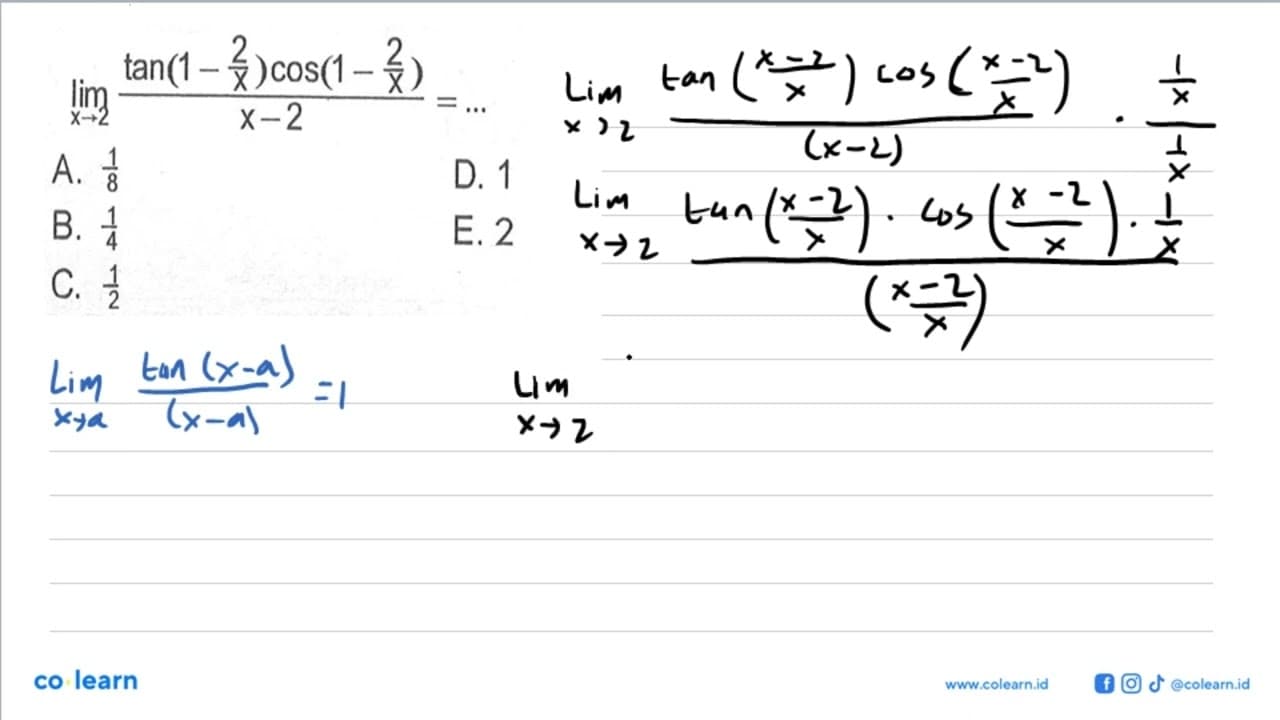 lim x→2 tan(1 – 2/x)cos(1 – 2/x) / x – 2 = ...
A. 1/8
B. 1/4
C. 1/2
D. 1
E. 2
Lim x→2 tan (x-2/x) cos (x-2/x) / (x-2) . 1/x / 1/x
Lim x→2 tan (x-2/x) . cos (x-2/x) . 1/x / (x-2/x)
Lim x→a tan (x-a) / (x-a) = 1
Lim x→2
co learn
www.colearn.id @colearn.id